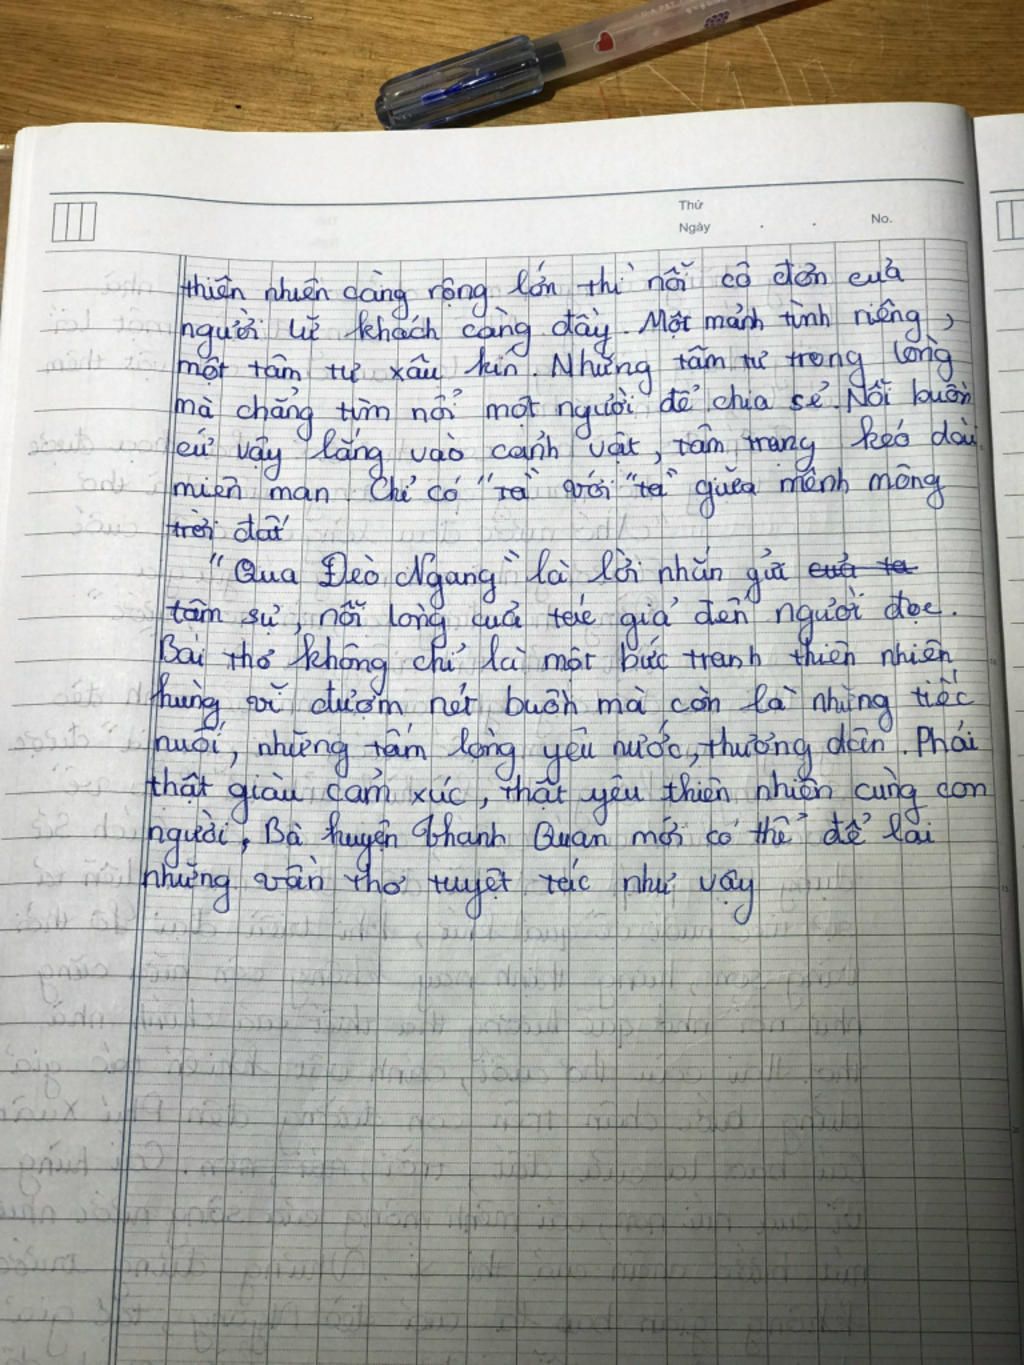 Thứ
Ngày . . No.
thiên nhiên càng rộng lớn thì nỗi cô đơn của
người lữ khách càng đầy. Một mảnh tình riêng,
một tâm tư xâu kín. Những tâm tư trong lòng
mà chẳng tìm nổi một người để chia sẻ. Nỗi buồn
cứ vậy lắng vào cảnh vật, tâm trạng kéo dài
miên man Chỉ có "ta" với "ta" giữa mênh mông
trời đất
"Qua Đèo Ngang" là lời nhắn gửi của ta
tâm sự, nỗi lòng của tác giả đến người đọc.
Bài thơ không chỉ là một bức tranh thiên nhiên
hùng vĩ đượm nét buồn mà còn là những tiếc
nuối, những tấm lòng yêu nước, thương dân. Phải
thật giàu cảm xúc, thật yêu thiên nhiên cùng con
người, Bà huyện Thanh Quan mới có thể để lại
những vần thơ tuyệt tác như vậy